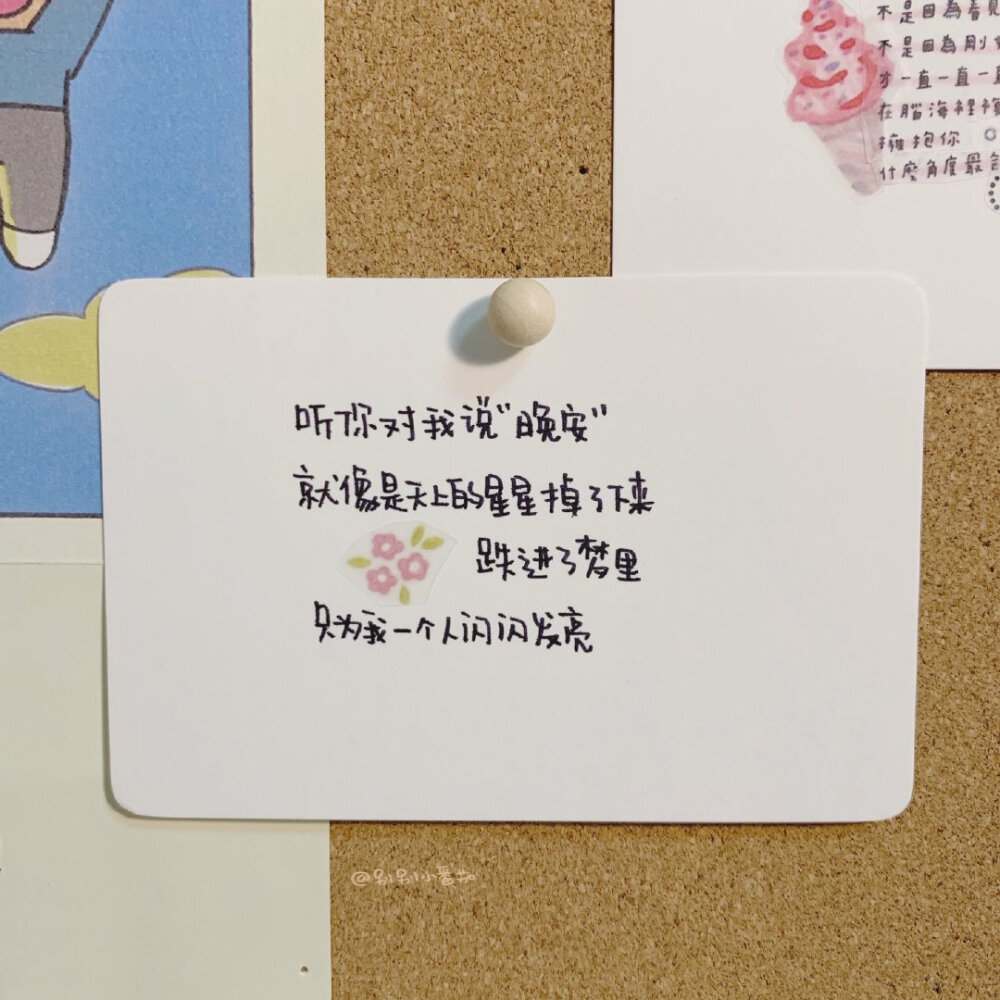 不是因為看見
不是因為剛好
才一直一直一
在腦海裡
擁抱你
什麼角度最
听你对我说“晚安”
就像是天上的星星掉了下来
跌进了梦里
只为我一个人闪闪发亮
@别别小番茄